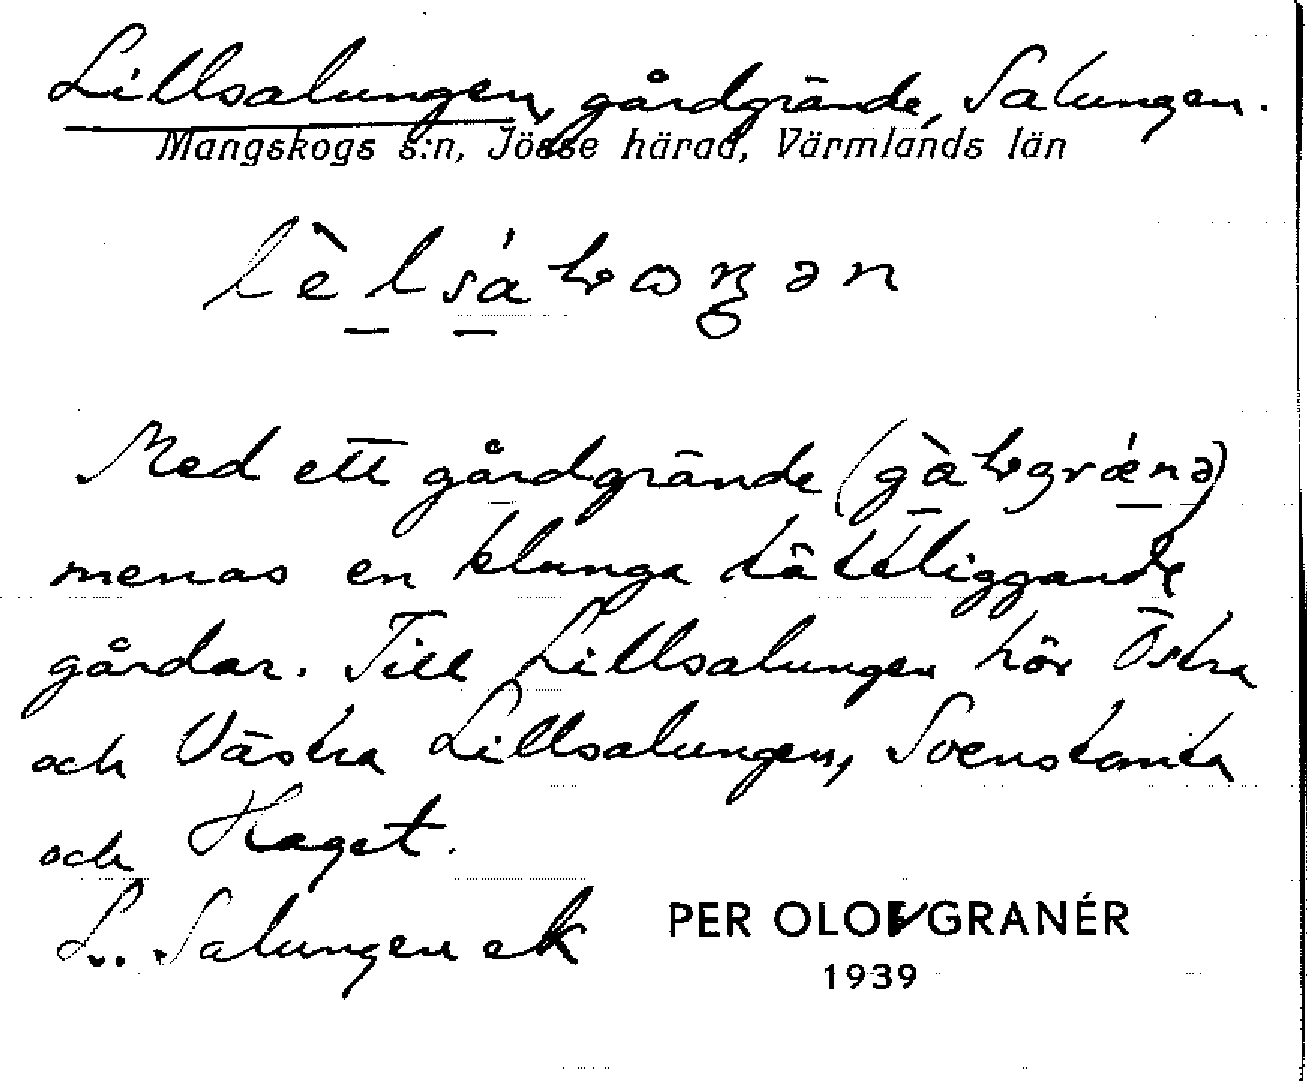 Lillsalungen, gårdgrände, Salungen.
Mangskogs s:n, Jösse härad, Värmlands län
Med ett gårdgrände
menas en klunga tättliggande
gårdar. Till Lillsalungen hör Östra
och Västra Lillsalungen, Svenstomta
och Haget.
L. Salungen ek
PER OLOF GRANÉR
1939